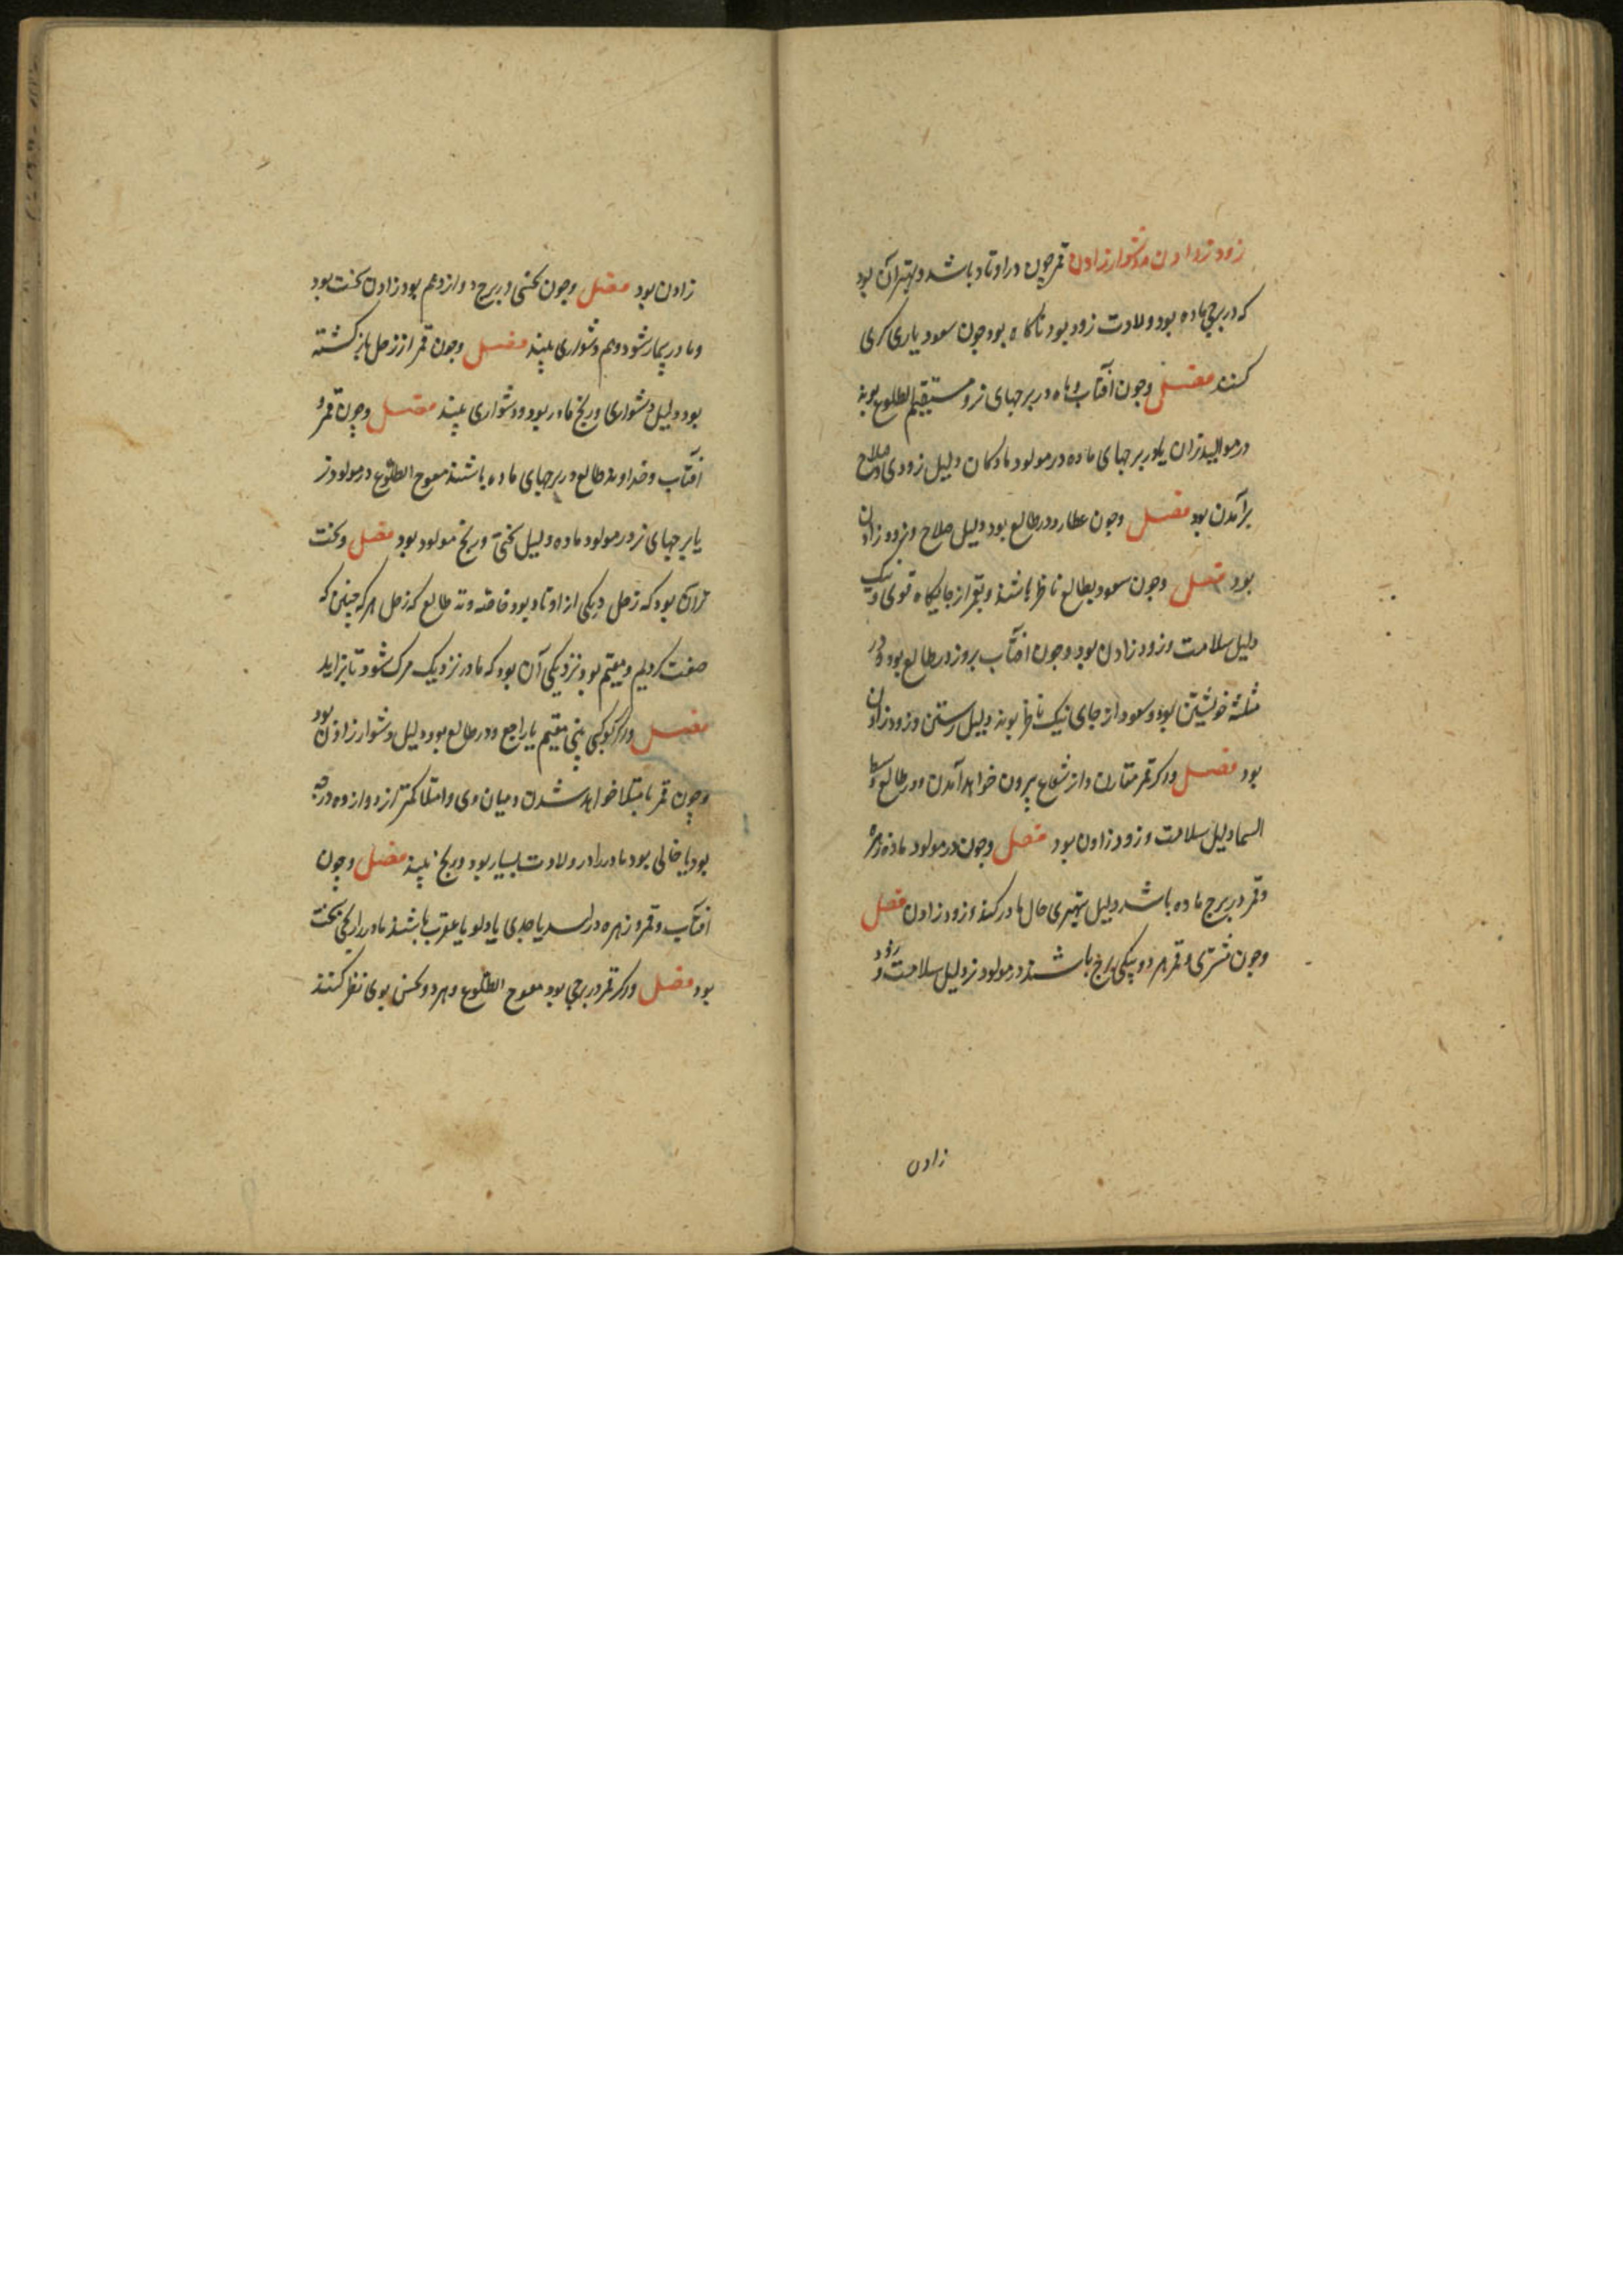 زود زادن و دشوار زادن قمر چون در اوتاد باشد و بهتر آن بود
که در برجی ماده بود ولادت زود بود ناکاه بود چون سعود یاری کری
کنند فصل وچون آفتاب و ماه در برجهای نر و مستقیم الطلوع بوند
در موالید نران یا در برجهای ماده در مولود مادکان دلیل زودی و صلاح
برآمدن بود فصل وچون عطارد در طالع بود دلیل صلاح و زود زادن
بود فصل وچون سعود بطالع ناظر باشند و بقمر از جایکاه قوی و نیک
دلیل سلامت و زود زادن بود وچون افتاب بروز در طالع بود و در
مثلثه خویشتن بود و سعود از جای نیک ناظر بوند دلیل رستن و زود زادن
بود فصل ورکر قمر مقارن و از شعاع بیرون خواهد آمدن و در طالع و وسط
السما دلیل سلامت و زود زادن بود فصل وچون در مولود ماده زهره
وقمر در برج ماده باشد دلیل بهتری حال مادر کند و زود زادن فصل
وچون مشتری و قمر هر دو بیکی برج باشند در مولود نر دلیل سلامت و زود
زادن
زادن بود فصل وچون نحسی در برج دوازدهم بود زادن سخت بود
و مادر بیمار شود و هم دشواری بیند فصل وچون قمر از زحل بازکشته
بود دلیل دشواری و رنج مادر بود و دشواری بیند فصل وچون قمر و
افتاب و خداوند طالع در برجهای ماده باشند معوج الطلوع در مولود نر
یا برجهای نر در مولود ماده دلیل سختی و رنج مولود بود فصل وسخت
تر آن بود که زحل در یکی از اوتاد بود خاصه وتد طالع که زحل هرکه چنین که
صفت کردیم و مقیم بود نزدیکی آن بود که مادر نزدیک مرک شود تا بزاید
فصل ورکر کوکبی بینی مقیم یا راجع و در طالع بود دلیل دشوار زادن بود
وچون قمر بامتلا خواهد شدن و میان وی و امتلا کمتر از دوازده درجه
بود یا خالی بود مادر را در ولادت بسیار بود و رنج بیند فصل وچون
افتاب و قمر و زهره در اسد یا جدی یا دلو یا عقرب باشند مادر را رنجی سخت
بود فصل ورکر قمر در برجی بود معوج الطلوع و هر دو نحس بوی نظر کنند